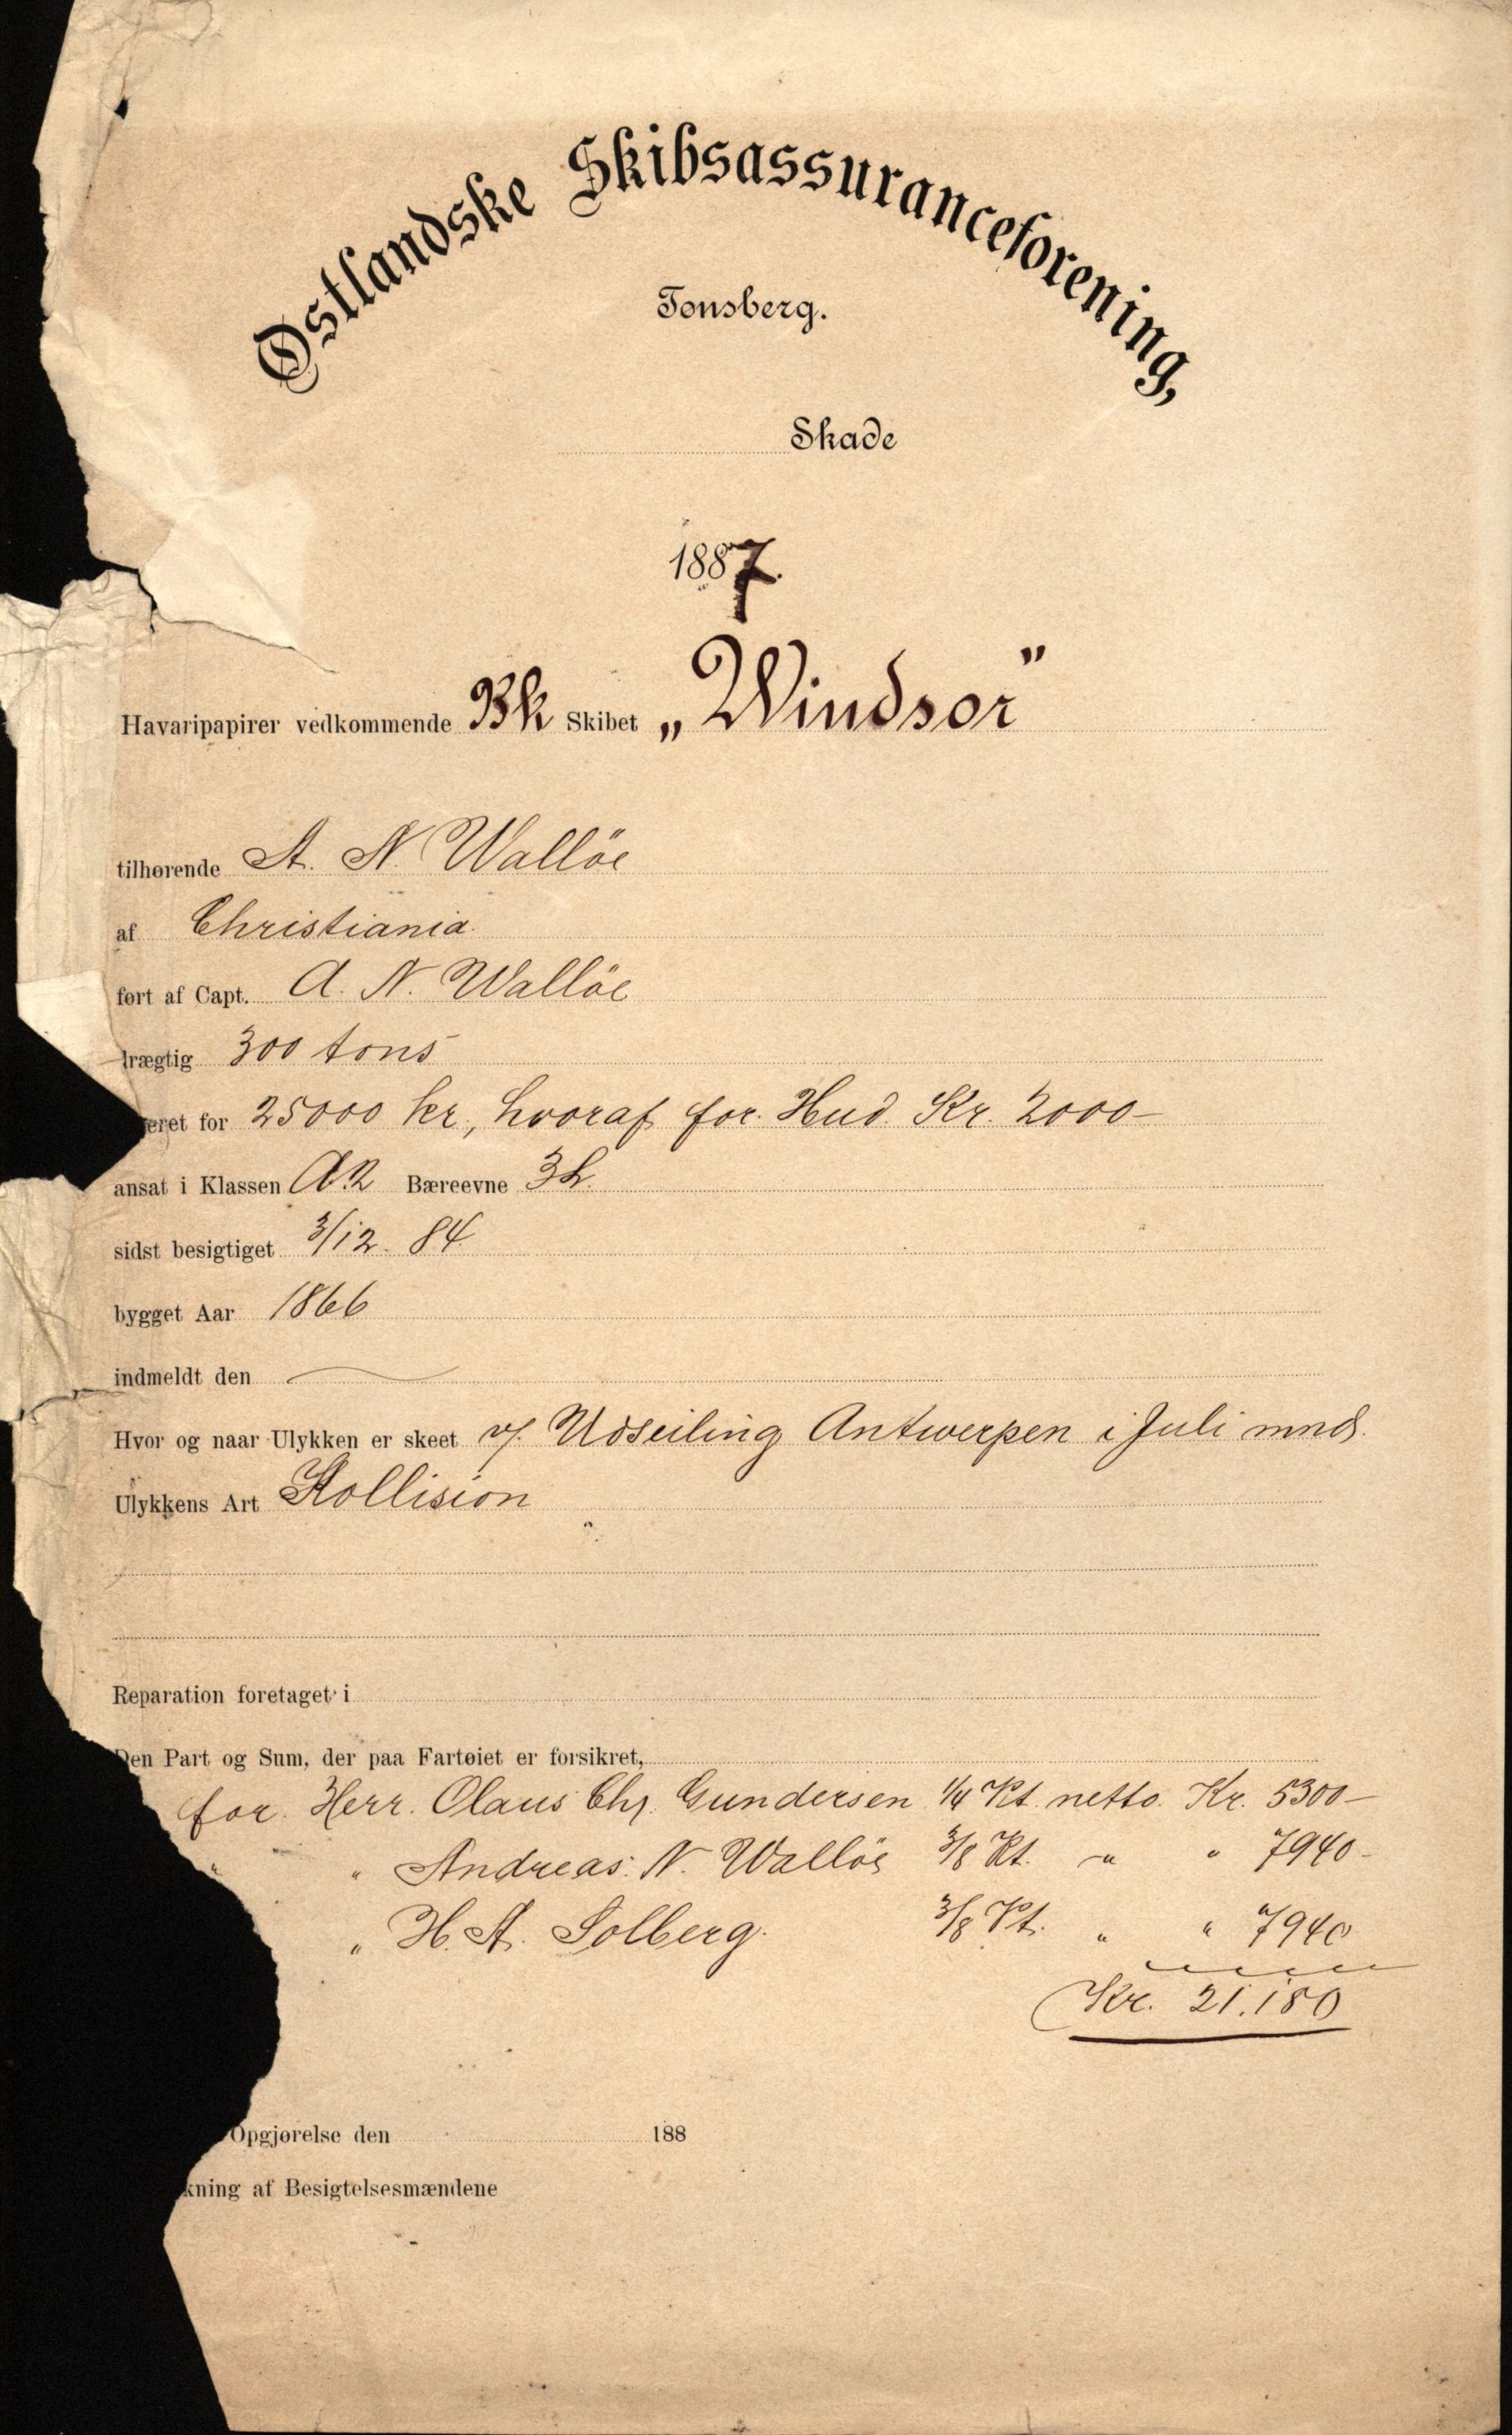 Østlandske Skibsassuranceforening,
Tønsberg.
Skade
1887.
Havaripapirer vedkommende Bk Skibet „Windsor"
tilhørende A. N. Wallöe
af Christiania.
ført af Capt. A. N. Wallöe
drægtig 300 tons
eret for 25000 kr, hvoraf for Hud. Kr. 2000–
ansat i Klassen A.2 Bæreevne 3L.
sidst besigtiget 3/12. 84
bygget Aar 1866
indmeldt den
Hvor og naar Ulykken er skeet v/. Udseiling Antwerpen i Juli mnd.
Ulykkens Art Kollision
Reparation foretaget i
Den Part og Sum, der paa Fartøiet er forsikret,
for Herr. Olaus Chr. Gundersen 1/4 Pt. netto. Kr. 5300–
" " Andreas N. Wallöe 3/8 Pt. " " 7940–
" H. A. Solberg. 3/8 Pt. " " 7940
Kr. 21.180
Opgjørelse den 188
kning af Besigtelsesmændene